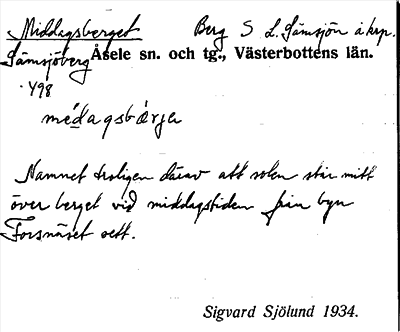 Middagsberget Berg S L. Gämsjön å krp.
Gämsjöberg Åsele sn. och tg., Västerbottens län.
498
médagsbárjə
Namnet troligen därav att solen står mitt
över berget vid middagstiden från byn
Forsnäset sett.
Sigvard Sjölund 1934.